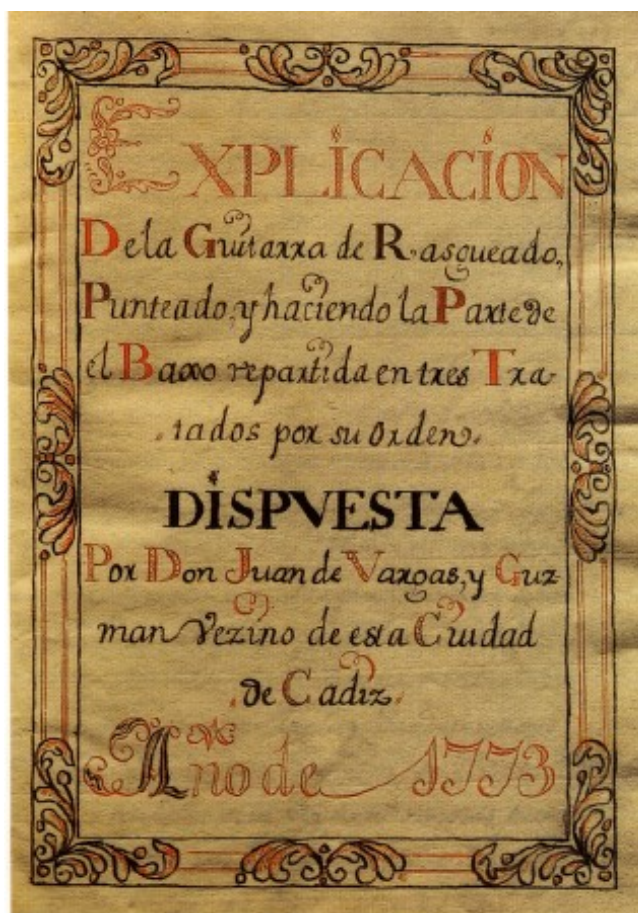 EXPLICACION
De la Guitarra de Rasgueado,
Punteado, y haciendo la Parte de
el Baxo repartida en tres Tra-
tados por su Orden.
DISPVESTA
Por Don Juan de Vargas, y Guz-
man Vezino de esta Ciudad
de Cadiz.
Año de 1773